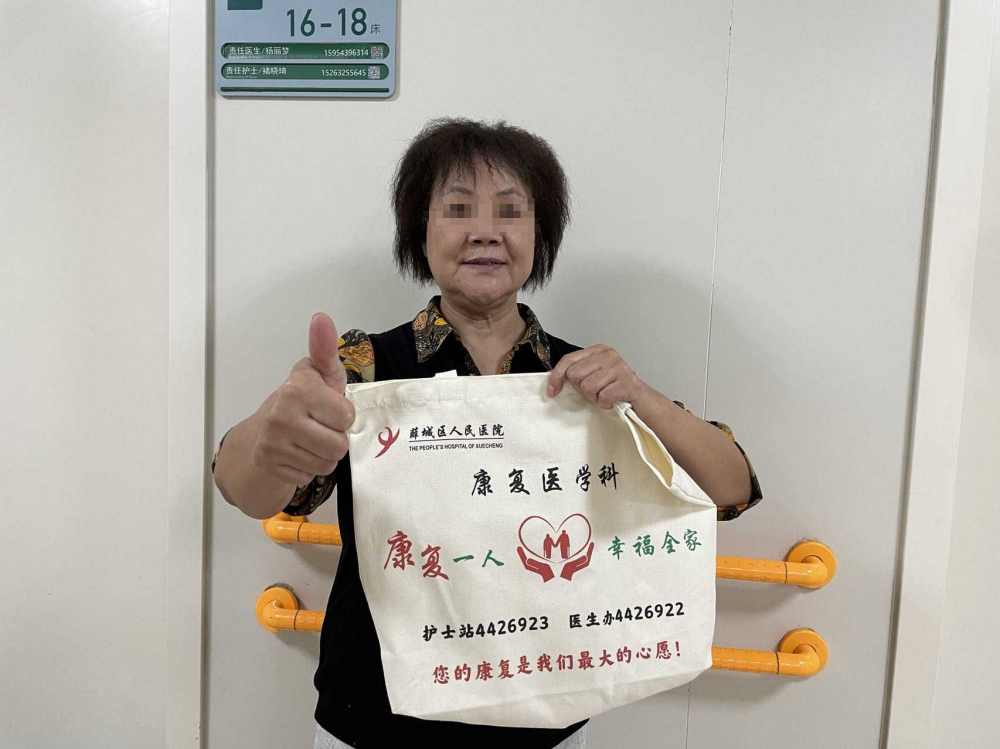 16-18床
责任医生/杨丽梦 15954396314
责任护士/褚晓琦 15263255645
薛城区人民医院
THE PEOPLE'S HOSPITAL OF XUECHENG
康复医学科
康复一人 幸福全家
护士站4426923 医生办4426922
您的康复是我们最大的心愿!